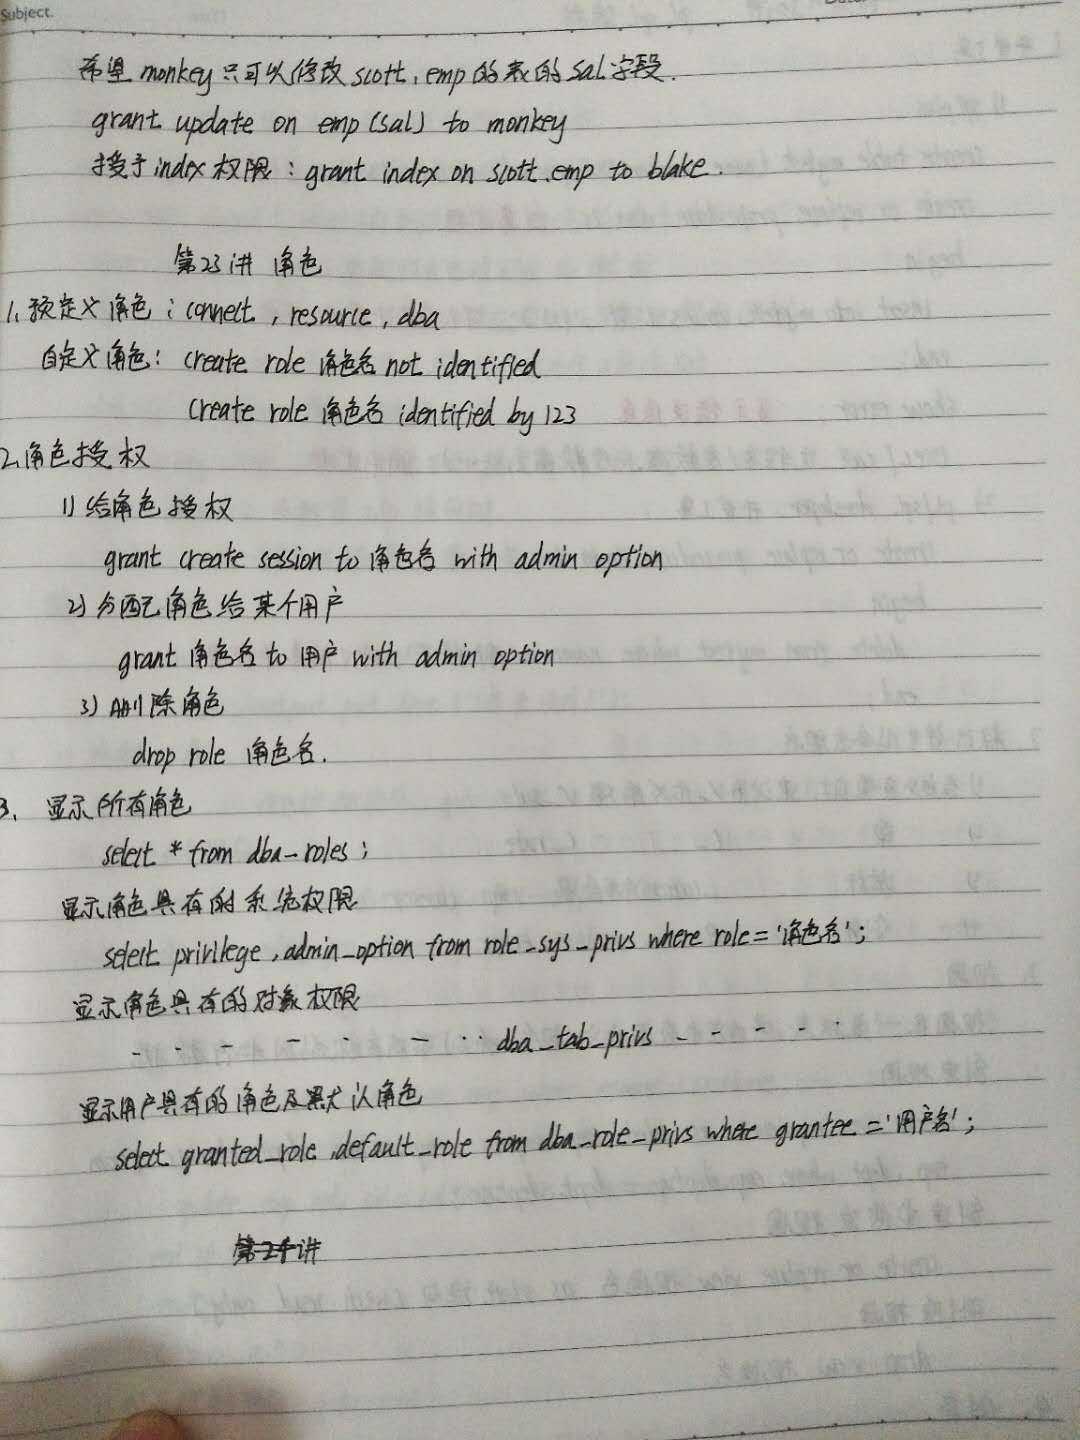 Subject.
希望 monkey 只可以修改 scott.emp 的表的 sal 字段.
grant update on emp(sal) to monkey
授予 index 权限：grant index on scott.emp to blake.
第23讲 角色
1、预定义角色：connect , resource , dba
自定义角色：create role 角色名 not identified
create role 角色名 identified by 123
2、角色授权
1) 给角色授权
grant create session to 角色名 with admin option
2) 分配角色给某个用户
grant 角色名 to 用户 with admin option
3) 删除角色
drop role 角色名.
3、显示所有角色
select * from dba_roles ;
显示角色具有的系统权限
select privilege , admin_option from role_sys_privs where role = '角色名' ;
显示角色具有的对象权限
- - - - - - · · dba_tab_privs - - - - ·
显示用户具有的角色及默认角色
select granted_role , default_role from dba_role_privs where grantee = '用户名' ;
第24讲